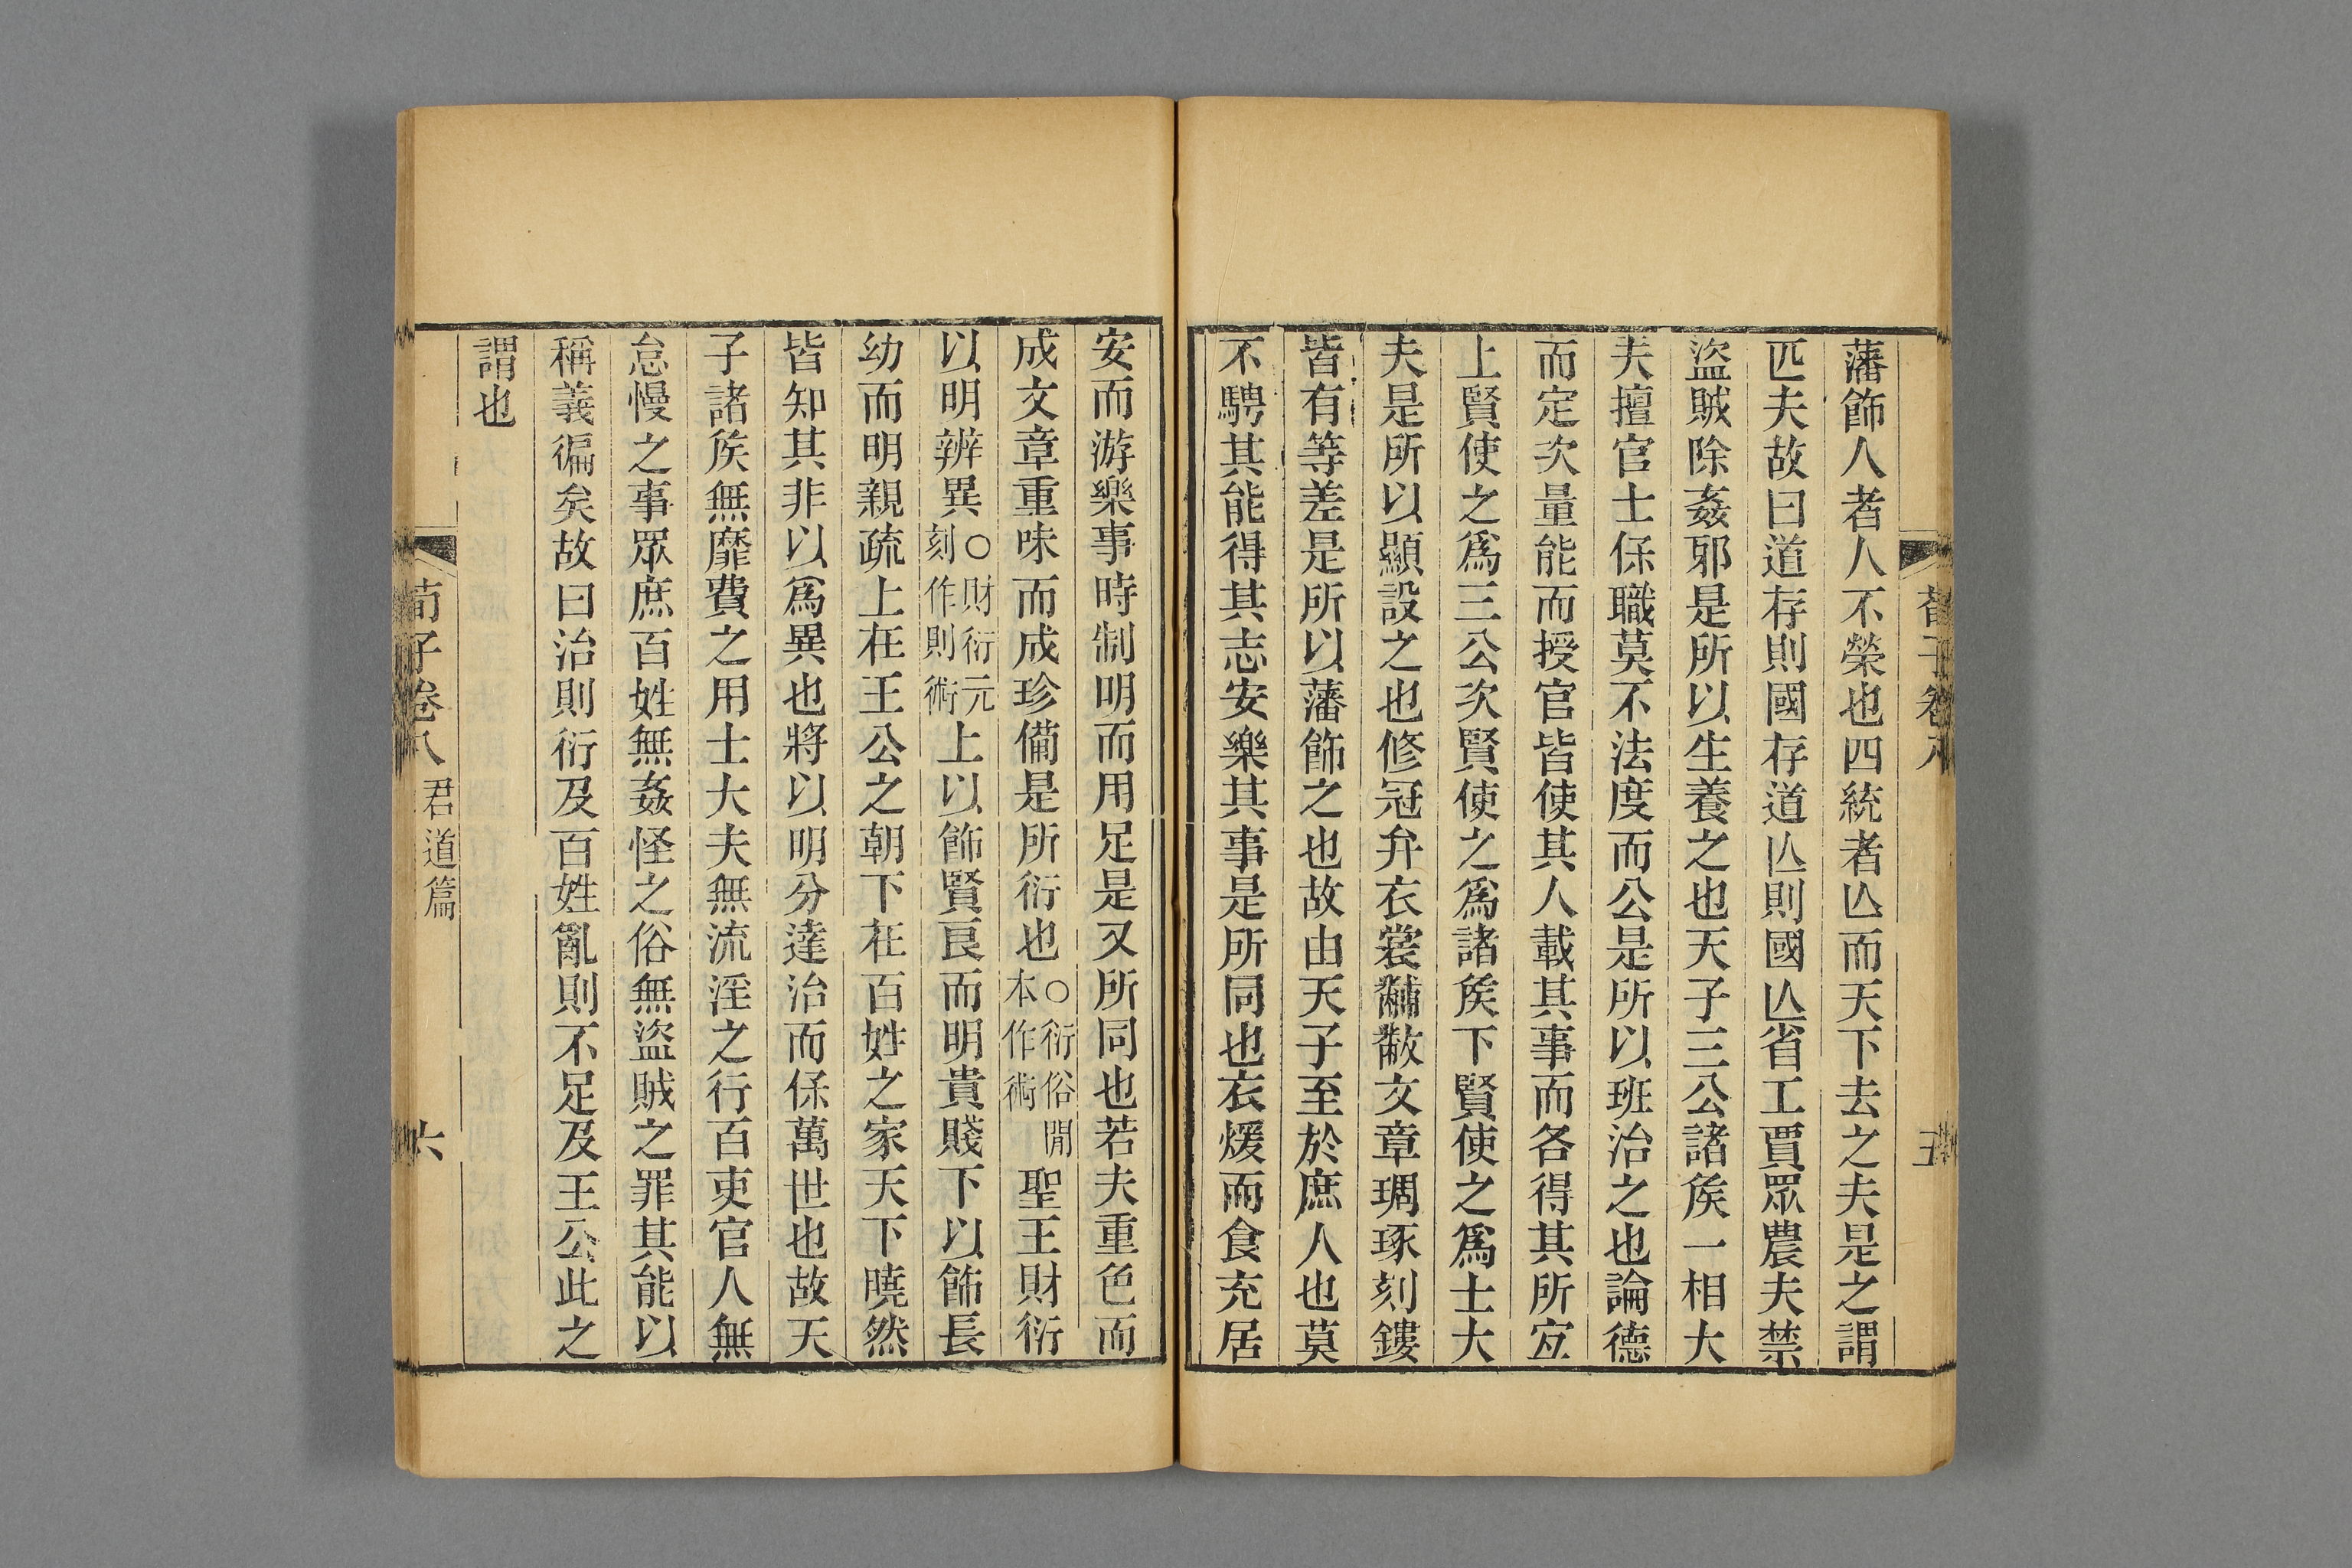 荀子卷八
五
藩飾人者人不榮也四統者亾而天下去之夫是之謂
匹夫故曰道存則國存道亾則國亾省工賈眾農夫禁
盜賊除姦邪是所以生養之也天子三公諸矦一相大
夫擅官士保職莫不法度而公是所以班治之也論德
而定次量能而授官皆使其人載其事而各得其所宜
上賢使之爲三公次賢使之爲諸矦下賢使之爲士大
夫是所以顯設之也修冠弁衣裳黼黻文章琱琢刻鏤
皆有等差是所以藩飾之也故由天子至於庶人也莫
不騁其能得其志安樂其事是所同也衣煖而食充居
安而游樂事時制明而用足是又所同也若夫重色而
成文章重味而成珍備是所衍也○衍俗閒本作術聖王財衍
以明辨異○財衍元刻作則術上以飾賢良而明貴賤下以飾長
幼而明親疏上在王公之朝下在百姓之家天下曉然
皆知其非以爲異也將以明分達治而保萬世也故天
子諸矦無靡費之用士大夫無流淫之行百吏官人無
怠慢之事眾庶百姓無姦怪之俗無盜賊之罪其能以
稱義徧矣故曰治則衍及百姓亂則不足及王公此之
謂也
荀子卷八 君道篇
六